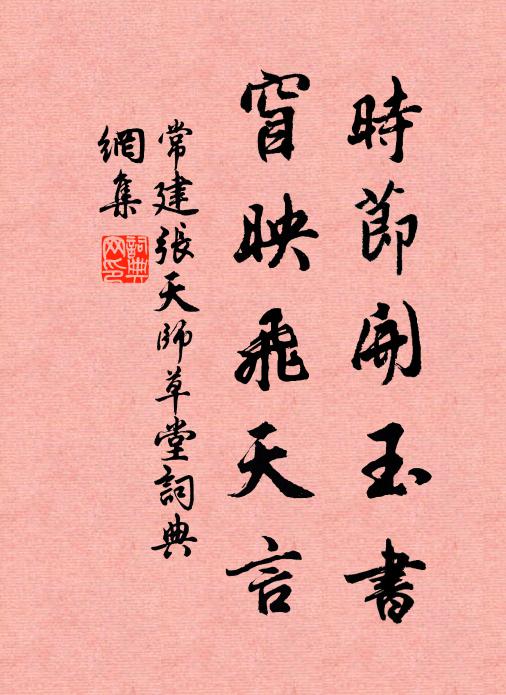 時節開玉書
窅映飛天言
常建張天師草堂詞典
網集
詞典
網印